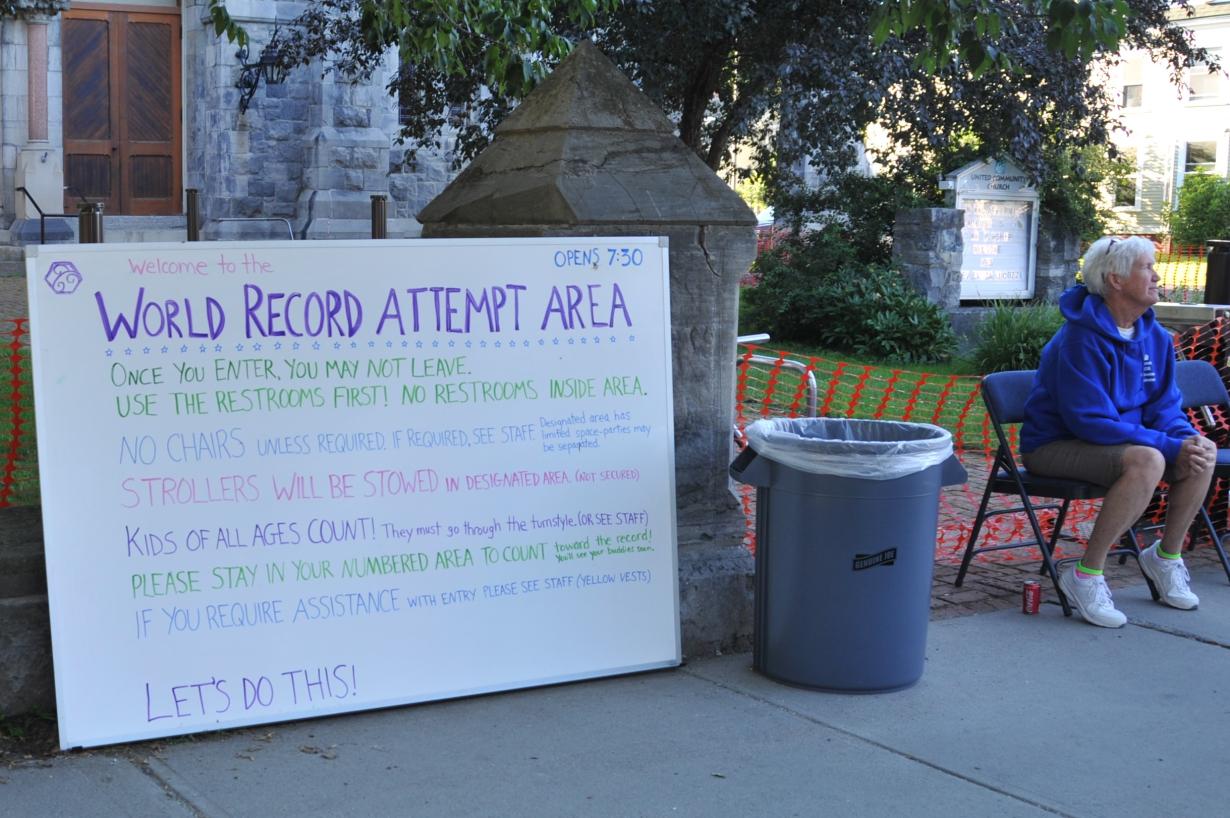 Welcome to the
OPENS 7:30
WORLD RECORD ATTEMPT AREA
ONCE YOU ENTER, YOU MAY NOT LEAVE.
USE THE RESTROOMS FIRST! NO RESTROOMS INSIDE AREA.
NO CHAIRS UNLESS REQUIRED. IF REQUIRED, SEE STAFF.
Designated area has
limited space-parties may
be separated.
STROLLERS WILL BE STOWED IN DESIGNATED AREA. (NOT SECURED)
KIDS OF ALL AGES COUNT! They must go through the turnstyle. (OR SEE STAFF)
PLEASE STAY IN YOUR NUMBERED AREA TO COUNT toward the record!
You'll see your buddies soon.
IF YOU REQUIRE ASSISTANCE WITH ENTRY PLEASE SEE STAFF (YELLOW VESTS)
LET'S DO THIS!
UNITED COMMUNITY
CHURCH
GENUINE JOE